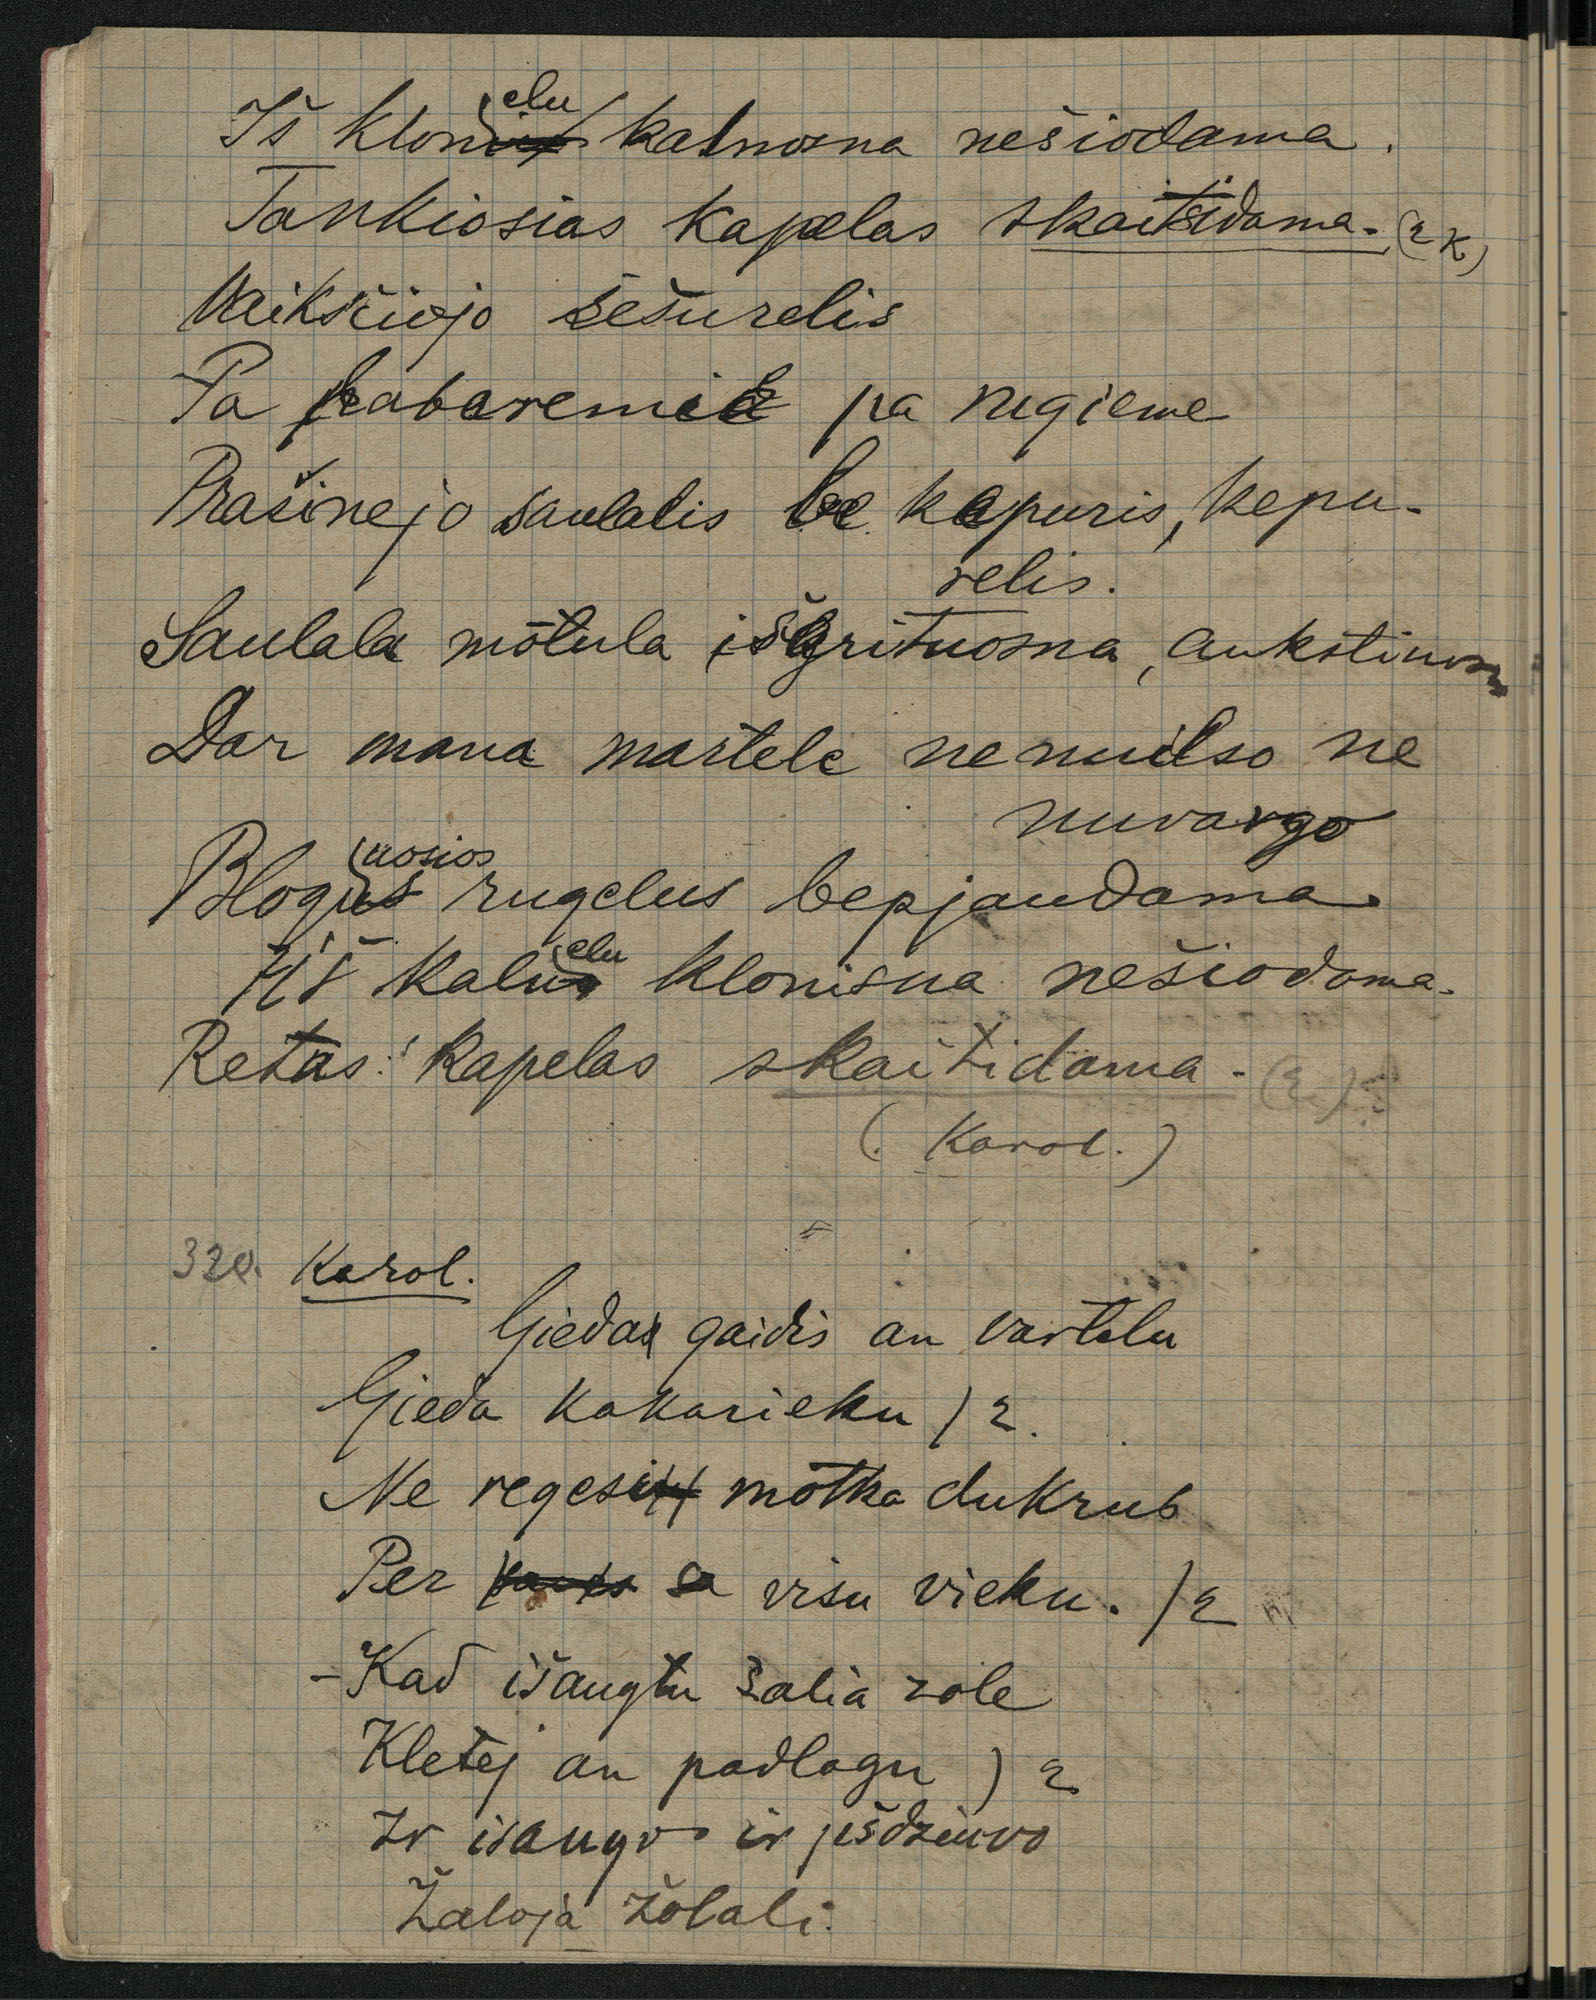 Iš klonelu kalnosna nešiodama.
Tankiosias kapelas skaitidama. (2 k)
Vaikščiojo šešurelis
Pa pabaremie pa rugieme
Prašinejo saulalis be kepuris, kepu-
relis.
Saulala motula išgrituosna, aukštinosn
Dar mana martele ne nuilso ne
nuvargo
Bloguosios rugelus bepjaudama.
Iš kalnelu klonisna nešiodama.
Retas kapelas skaitidama. (2.)
(Karol.)
320. Karol.
Gieda gaidis an vartelu
Gieda kakarieku ) 2.
Ne regesi motka dukrub
Per visu vieku. ) 2
- Kad išaugtu šalia zole
Kletej an padlagu ) 2
Ir isaugo ir išdziuvo
Žaloja žolali.